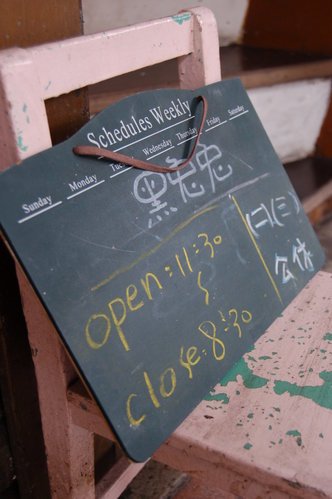 Schedules Weekly
Sunday Monday Tue Wednesday Thursday Friday Saturday
黑兔兔
open:11:30
~
close:8:30
(二)(三)
公休